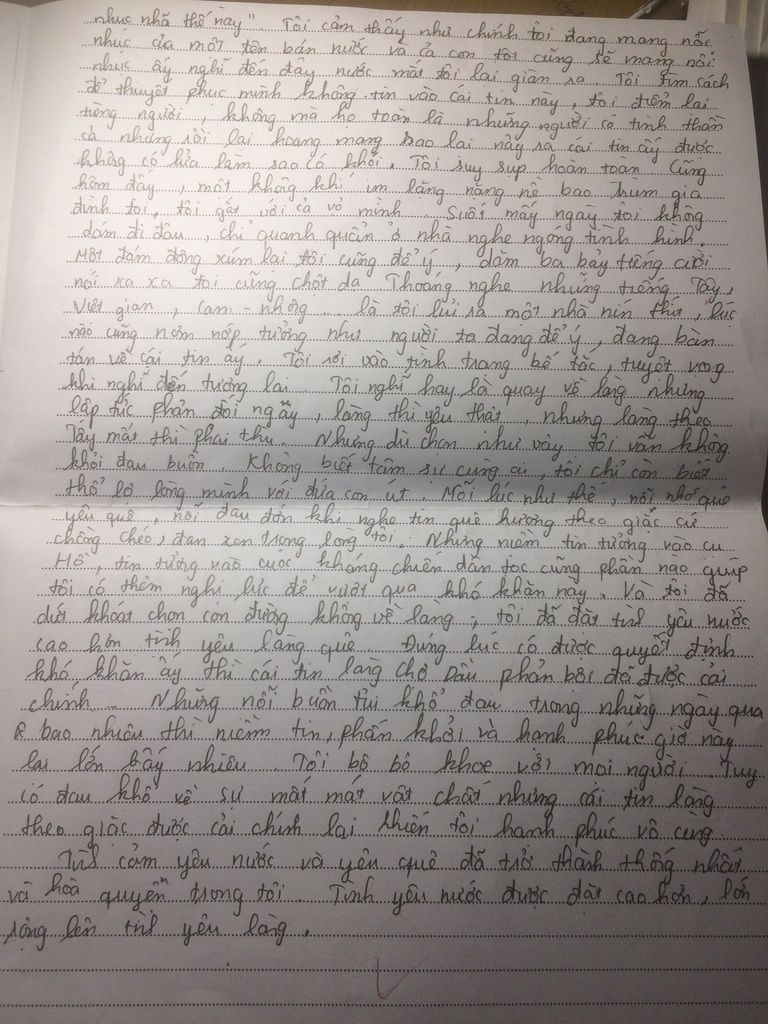 nhục nhã thế này" Tôi cảm thấy như chính tôi đang mang nỗi
nhục của một tên bán nước và cả con tôi cũng sẽ mang nỗi
nhục ấy nghĩ đến đây nước mắt tôi lại giàn ra. Tôi tìm cách
để thuyết phục mình không tin vào cái tin này, tôi điểm lại
từng người, không mà họ toàn là những người có tinh thần
cả nhưng rồi lại hoang mang sao lại nảy ra cái tin ấy được
không có lửa làm sao có khói. Tôi suy sụp hoàn toàn. Cũng
hôm đấy, một không khí im lặng nặng nề bao trùm gia
đình tôi, tôi gắt với cả vợ mình. Suốt mấy ngày tôi không
dám đi đâu, chỉ quanh quẩn ở nhà nghe ngóng tình hình.
Một đám đông xúm lại tôi cũng để ý, dăm ba bảy tiếng cười
nói xa xa tôi cũng chột dạ Thoáng nghe những tiếng Tây,
Việt gian, cam - nhông... là tôi lủi ra một nhà nín thít, lúc
nào cũng nơm nớp tưởng như người ta đang để ý, đang bàn
tán về cái tin ấy. Tôi rơi vào tình trạng bế tắc, tuyệt vọng
khi nghĩ đến tương lai. Tôi nghĩ hay là quay về làng nhưng
lập tức phản đối ngay, làng thì yêu thật, nhưng làng theo
Tây mất thì phải thù. Nhưng dù chọn như vậy tôi vẫn không
khỏi đau buồn. Không biết tâm sự cùng ai, tôi chỉ còn biết
thổ lộ lòng mình với đứa con út. Mỗi lúc như thế, nỗi nhớ quê
yêu quê, nỗi đau đớn khi nghe tin quê hương theo giặc cứ
chồng chéo, đan xen trong lòng tôi. Nhưng niềm tin tưởng vào cụ
Hồ, tin tưởng vào cuộc kháng chiến dân tộc cũng phần nào giúp
tôi có thêm nghị lực để vượt qua khó khăn này. Và tôi đã
dứt khoát chọn con đường không về làng, tôi đã đặt tình yêu nước
cao hơn tình yêu làng quê. Đúng lúc có được quyết định
khó khăn ấy thì cái tin làng chợ Dầu phản bội đã được cải
chính. Những nỗi buồn tủi khổ đau trong những ngày qua
bao nhiêu thì niềm tin, phấn khởi và hạnh phúc giờ này
lại lớn bấy nhiêu. Tôi bô bô khoe với mọi người. Tuy
có đau khổ về sự mất mát vật chất nhưng cái tin làng
theo giặc được cải chính lại khiến tôi hạnh phúc vô cùng
Tình cảm yêu nước và yêu quê đã trở thành thống nhất
và hoà quyện trong tôi. Tình yêu nước được đặt cao hơn, lớn
rộng lên tình yêu làng.